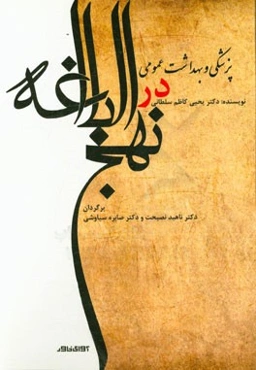 پزشکی و بهداشت عمومی
در
نهج البلاغه
نویسنده: دکتر یحیی کاظم سلطانی
برگردان
دکتر ناهید نصیحت و دکتر صابره سیاوشی
آوای خاور